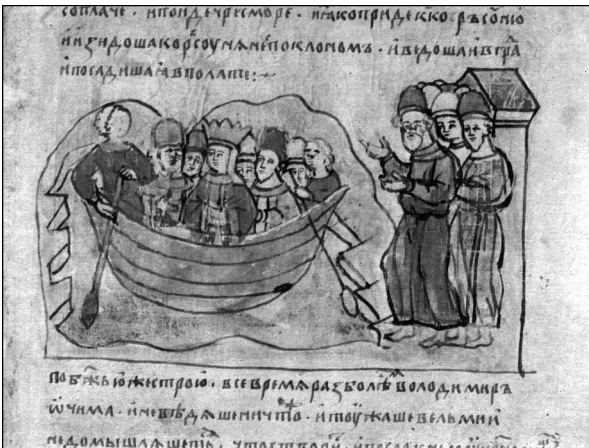 со плаче . и поиде чрес море . и ꙗко приде к корьсоню
и изидоша корсоунѧне с поклономъ . и ведоша ю в гра
и посадиша ю в полате :~
по бж҃ью же строю . в се времѧ разболѣсѧ володимиръ
ѡчима . и не вѣдѧше ничто . и тоужаше вельми и
недомышлѧшетьсѧ . что створити